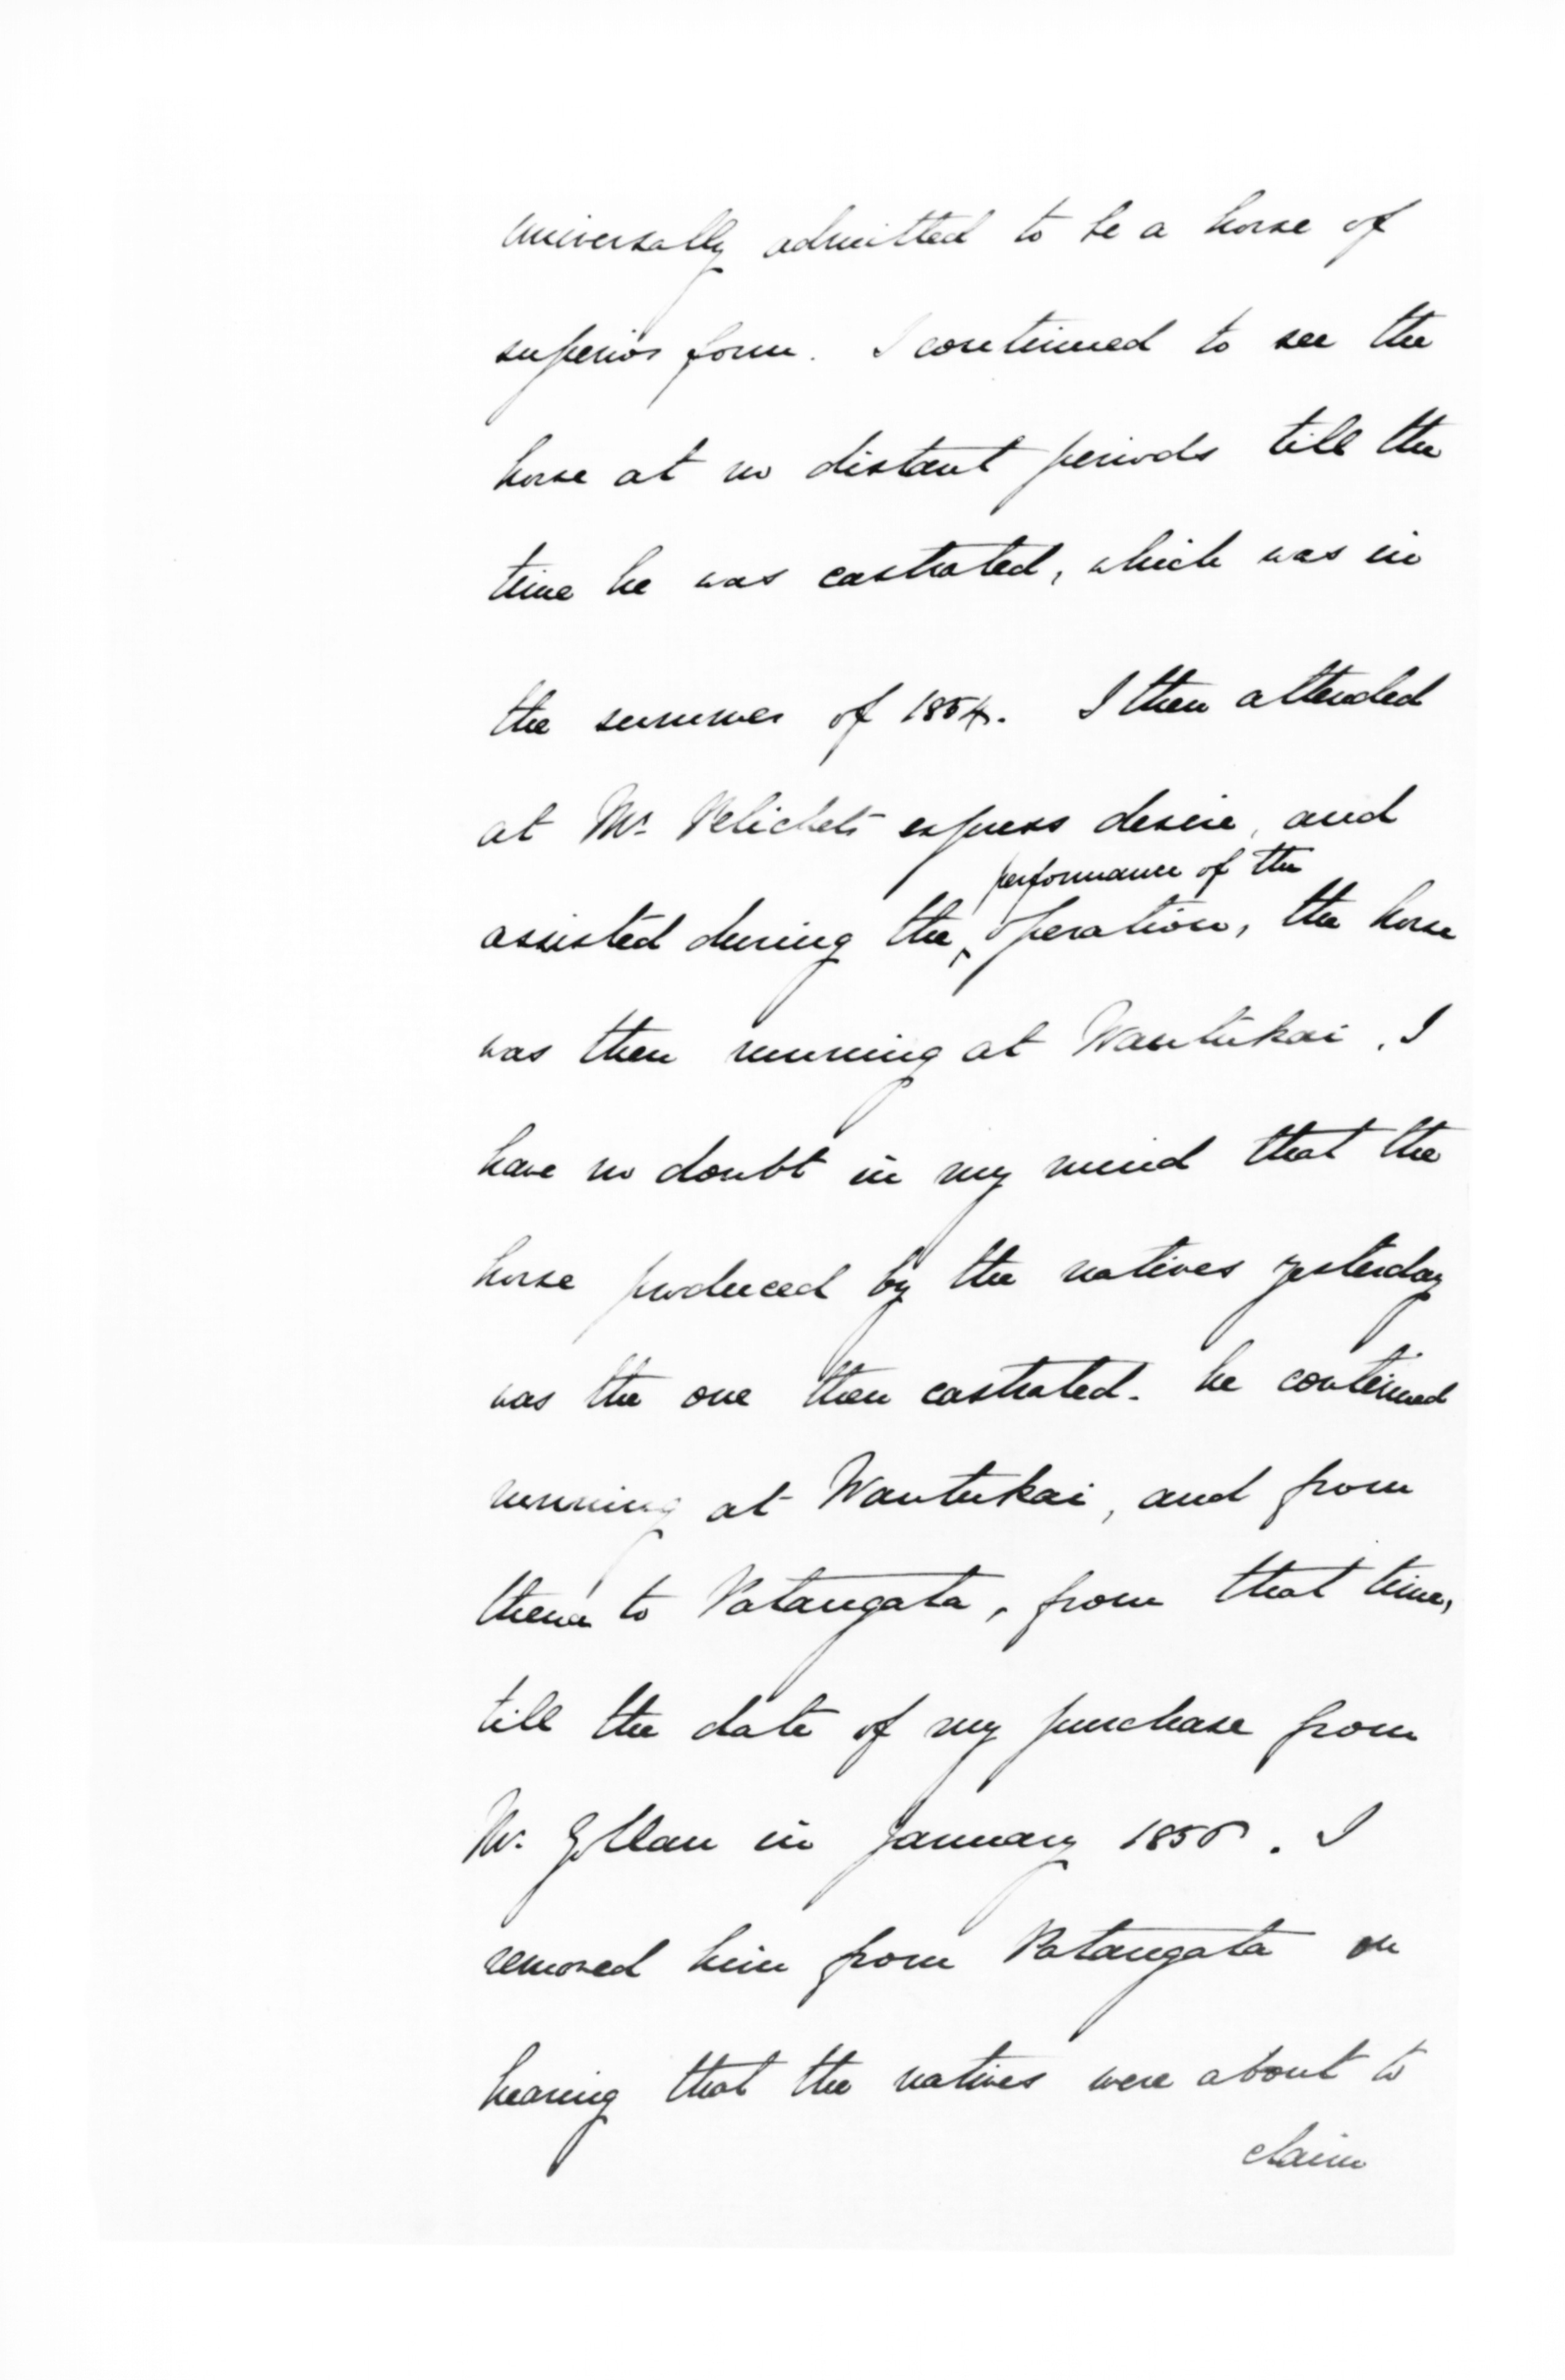 universally admitted to be a horse of
superior form. I continued to see the
horse at no distant periods till the
time he was castrated, which was in
the summer of 1854. I then attended
at Mr. express desire, and
performance of the
assisted during the operation, the horse
was then running at Wautukai. I
have no doubt in my mind that the
horse produced by the natives yesterday
was the one then castrated. he continued
running at Wautukai, and from
thence to Patangata, from that time,
till the date of my purchase from
Mr. Gollan in January 185
. I
removed him from Patangata on
hearing that the natives were about to
claim